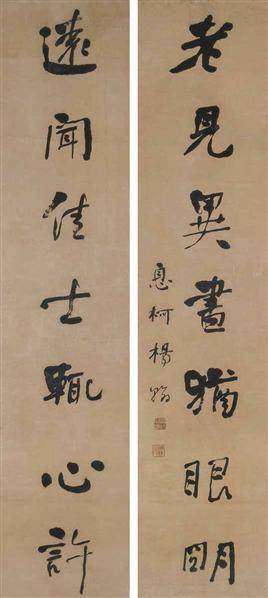 老見異書猶眼明
息柯楊翰
遠聞佳士輒心許